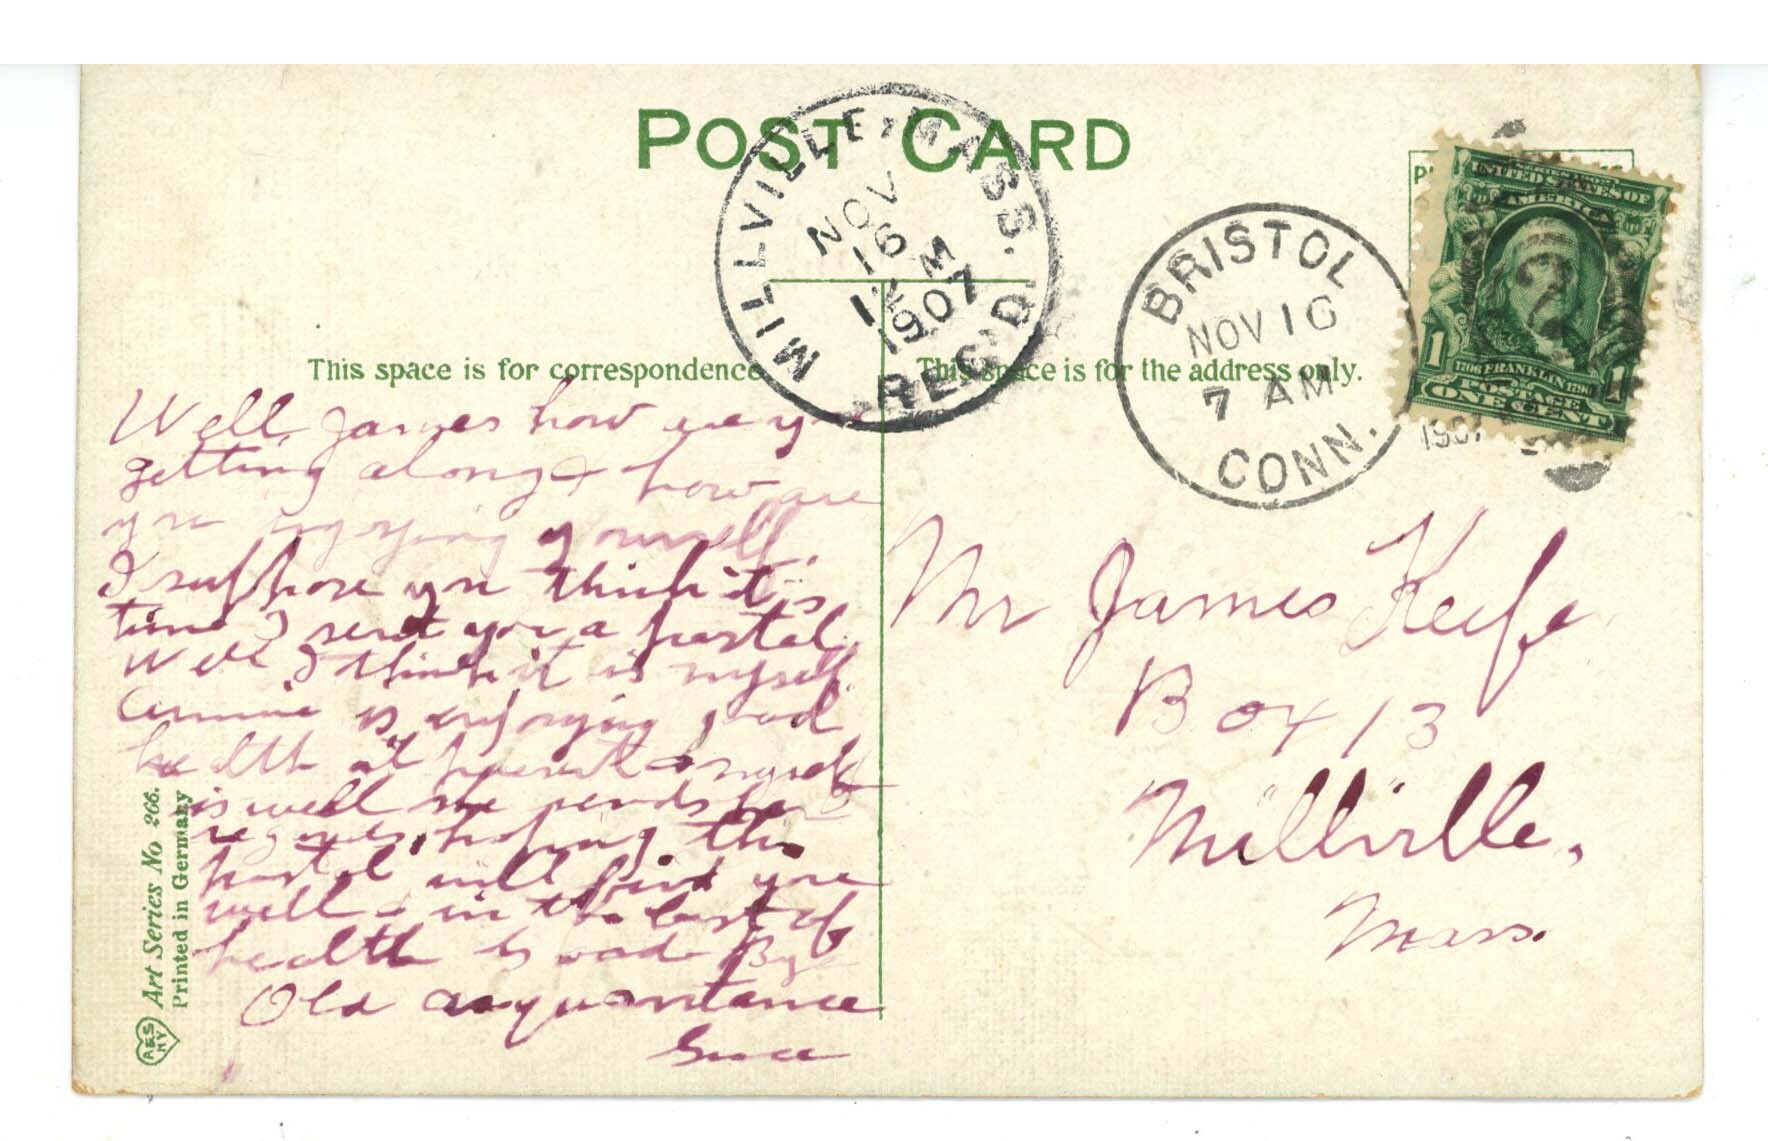 POST CARD
MILLVILLE, MASS.
NOV
16
12 M
1907
REC'D
BRISTOL
NOV 16
7 AM
CONN.
1907
UNITED STATES OF
AMERICA
1706 FRANKLIN 1790
POSTAGE
1 ONE CENT 1
This space is for correspondence
This space is for the address only.
Well James how are
getting along & how are
you enjoying yourself.
I suppose you think it is
time I sent you a postal.
Well I think it is myself.
is enjoying good
health at present & myself
is well she sends her
regards, hoping this
postal will find you
well & in the best of
health
Old acquantance
Grace
Mr James Keefe
Box 13
Millville,
Mass.
Art Series No 266.
Printed in Germany